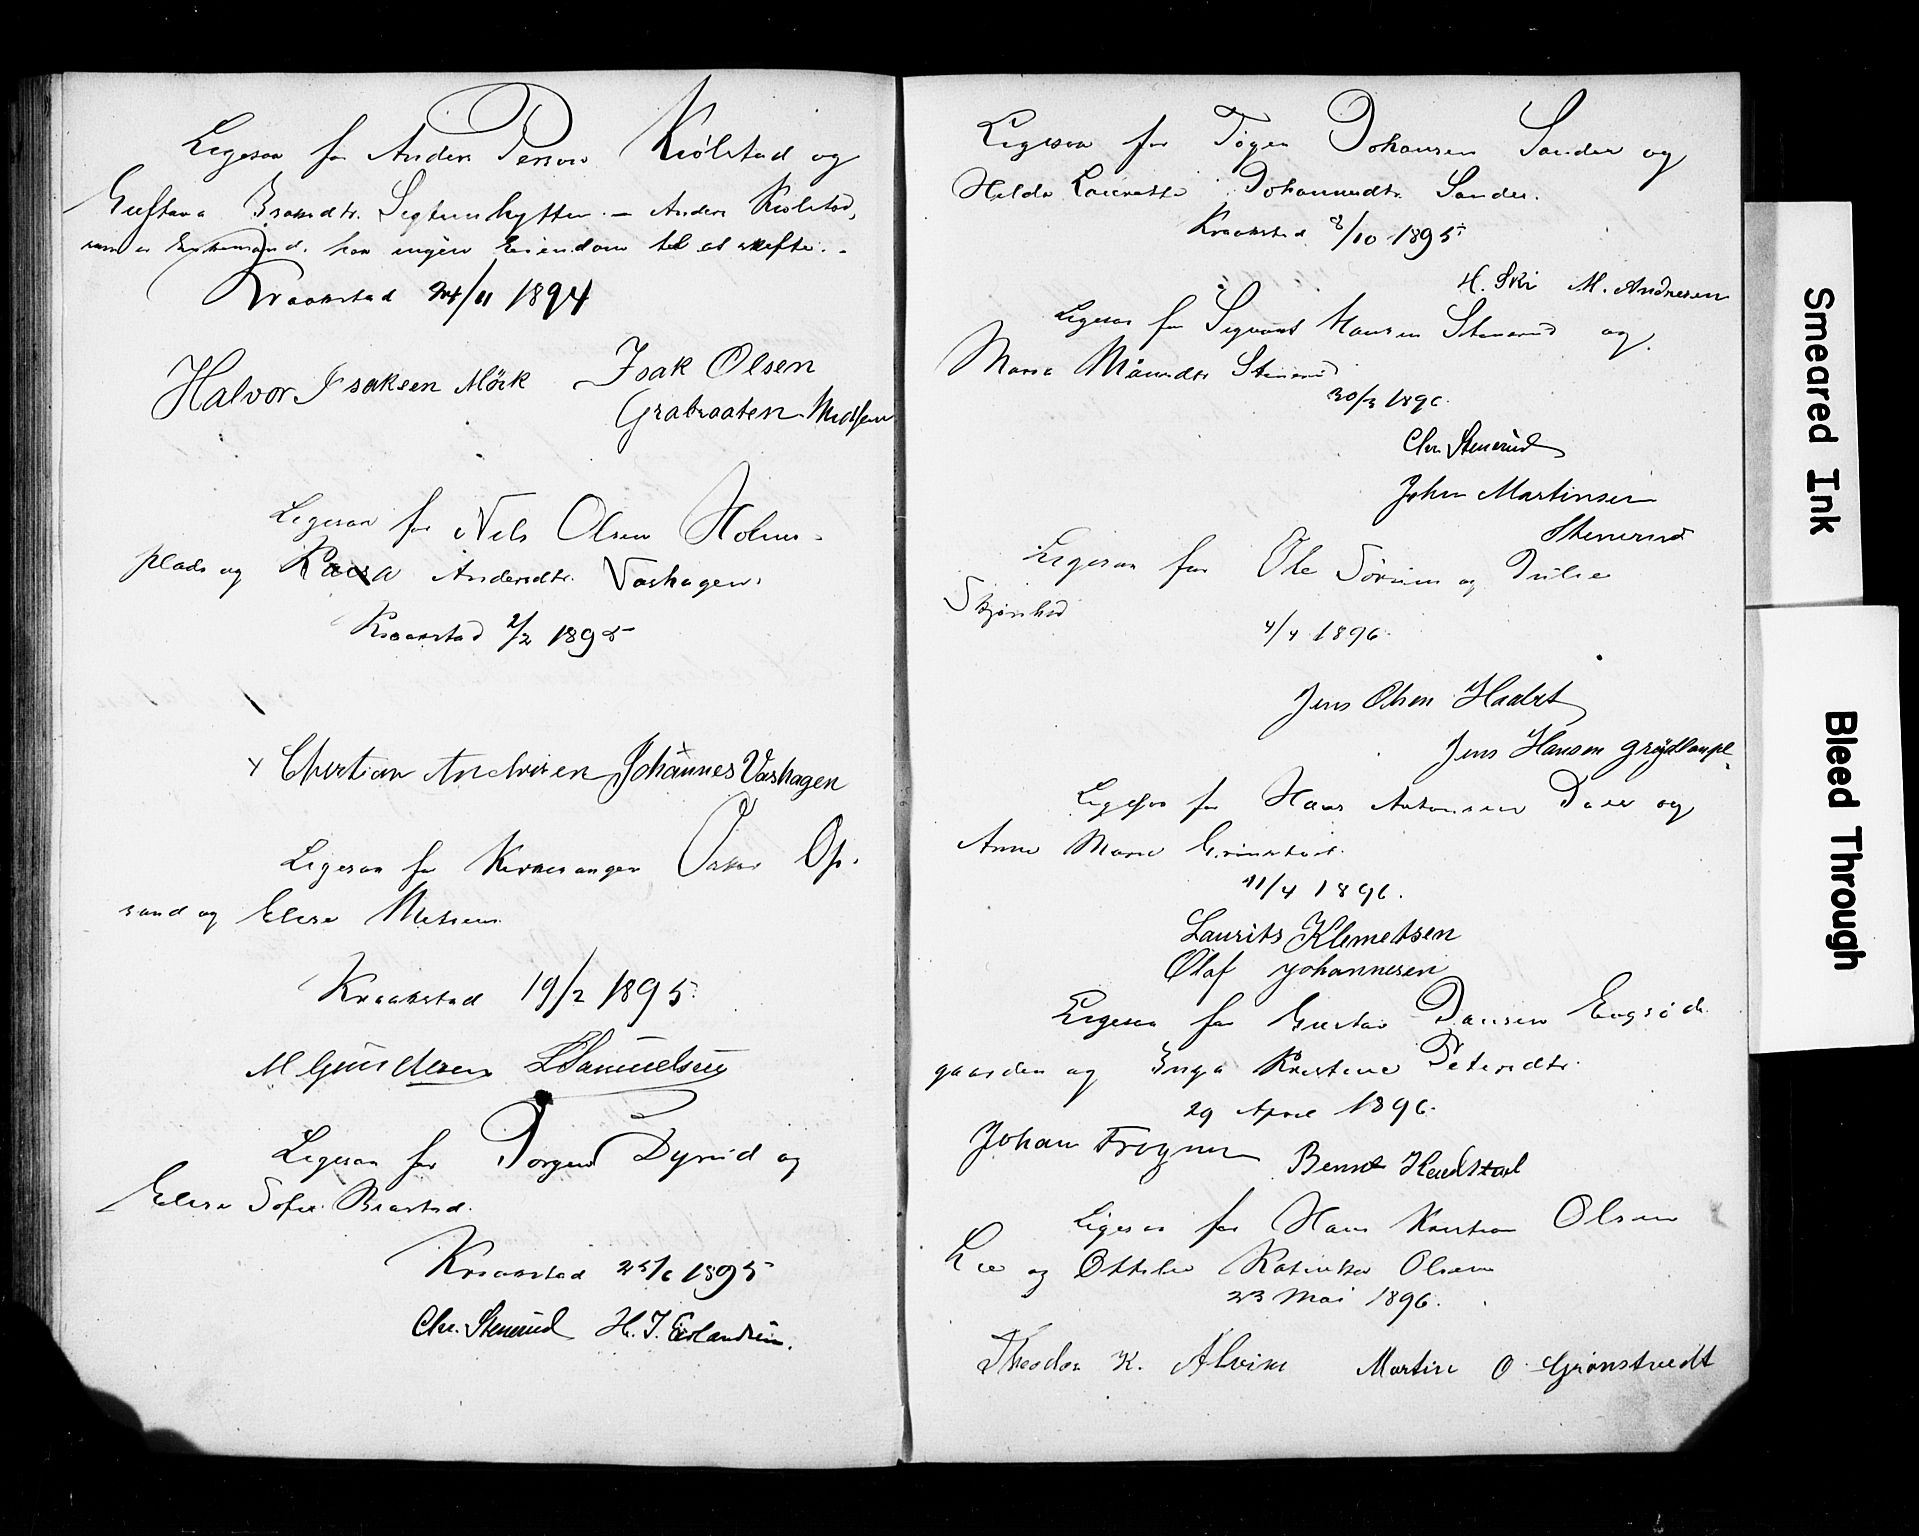 Ligesaa for Anders Person Kiølstad og
Gustava Bramdtr. Segtunhytten. – Anders Kiolstad,
som er Enkemand, har ingen Eiendom til at skifte. –
Kraakstad 24/11 1894
Halvor Isaksen Mörk Isak Olsen
Grabraaten
Ligesaa for Nels Olsen Holms-
plads og Andersdtr. Vashagen.
Kraakstad 2/2 1895
x Christian Andresen Johannes Vashagen
Ligesaa for Kirkesanger Oskar Op-
sand og Elise Metsen
Kraakstad 19/2 1895.
M Gundersen L Samuelsen
Ligesaa for Jorgen Dyrud og
Elise Sofie Braatad.
Kraakstad 25/6 1895
Chr. Stenerud H. J. Erlandsen.
Ligesaa for Johansen Sander og
Hilda Laurette Johannesdtr. Sander.
Kraakstad 8/10 1895
H. Ski M. Andresen
Ligesaa for Sigvart Hansen Stenerud og
Maria Stenerud
30/3 1896.
Chr. Stenerud
Johan Martinsen
Stenerud
Ligesaa for Ole Sörum og Julie
Skjønhod
4/4 1896.
Jens Olsen
Jens Hansen Grøstlanpl.
Ligesaa for Hans Antonsen Daler og
Anne Marie Grimstad.
11/4 1896.
Laurits Klemetsen
Olaf Johannesen
Ligesaa for Gustav Jansen Engsød
gaarden og Inga Kristine Petersdtr.
29 April 1896.
Johan Frogner Bernt Haulstad
Ligesaa for Hans Kristian Olsen
Lie og Ottilie Katinka Olsen
23 Mai 1896.
Theodor K. Martin O Grönstvedt
Smeared Ink
Bleed Through